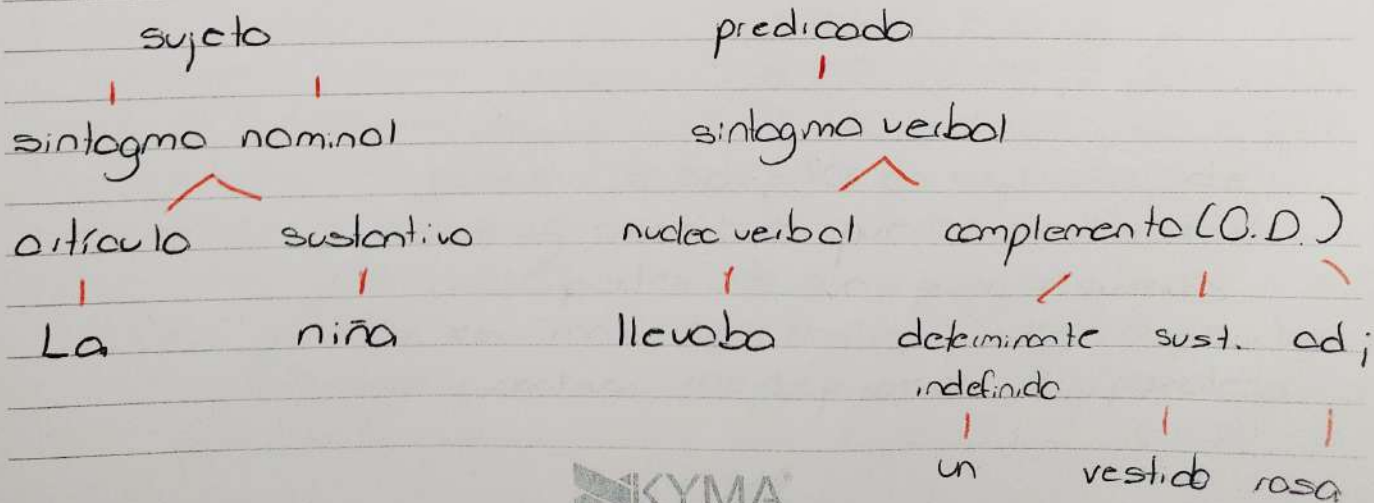 sujeto predicado
sintagma nominal sintagma verbal
artículo sustantivo nucleo verbal complemento (O.D.)
La niña llevaba determinante sust. adj
indefinido
un vestido rosa
KYMA